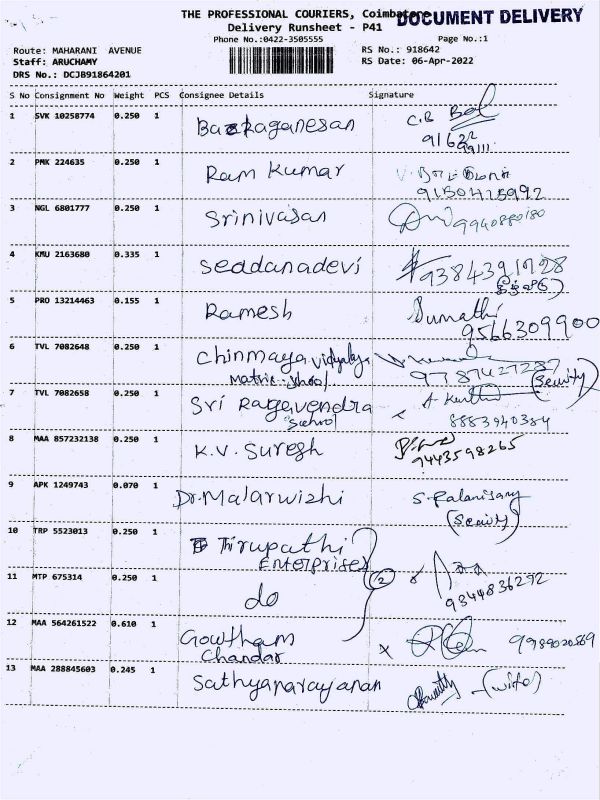 THE PROFESSIONAL COURIERS, Coimbatore
DOCUMENT DELIVERY
Delivery Runsheet - P41
Phone No.:0422-3505555
Page No.:1
Route: MAHARANI AVENUE
RS No.: 918642
Staff: ARUCHAMY
RS Date: 06-Apr-2022
DRS No.: DCJB91864201
S No Consignment No Weight PCS Consignee Details Signature
1 SVK 10258774 0.250 1
2 PMK 224635 0.250 1 Ram Kumar
9150425992
3 NGL 6801777 0.250 1 Srinivasan
9940880180
4 KMU 2163680 0.335 1 Seddanadevi
5 PRO 13214463 0.155 1 Ramesh Sumathi
9566309900
6 TVL 7082648 0.250 1 Chinmaya vidyalaya
Matric. School
9787427287
(Security)
7 TVL 7082658 0.250 1 Sri Ragavendra
School
8883940384
8 MAA 857232138 0.250 1 K.V. Suresh
9443598265
9 APK 1249743 0.070 1 Dr. Malarwizhi
10 TRP 5523013 0.250 1 Thirupathi
Enterprises
(2)
11 MTP 675314 0.250 1 do
9344836292
12 MAA 564261522 0.610 1 Gowtham
Chandar
13 MAA 288845603 0.245 1 Sathyanarayanan
(wife)